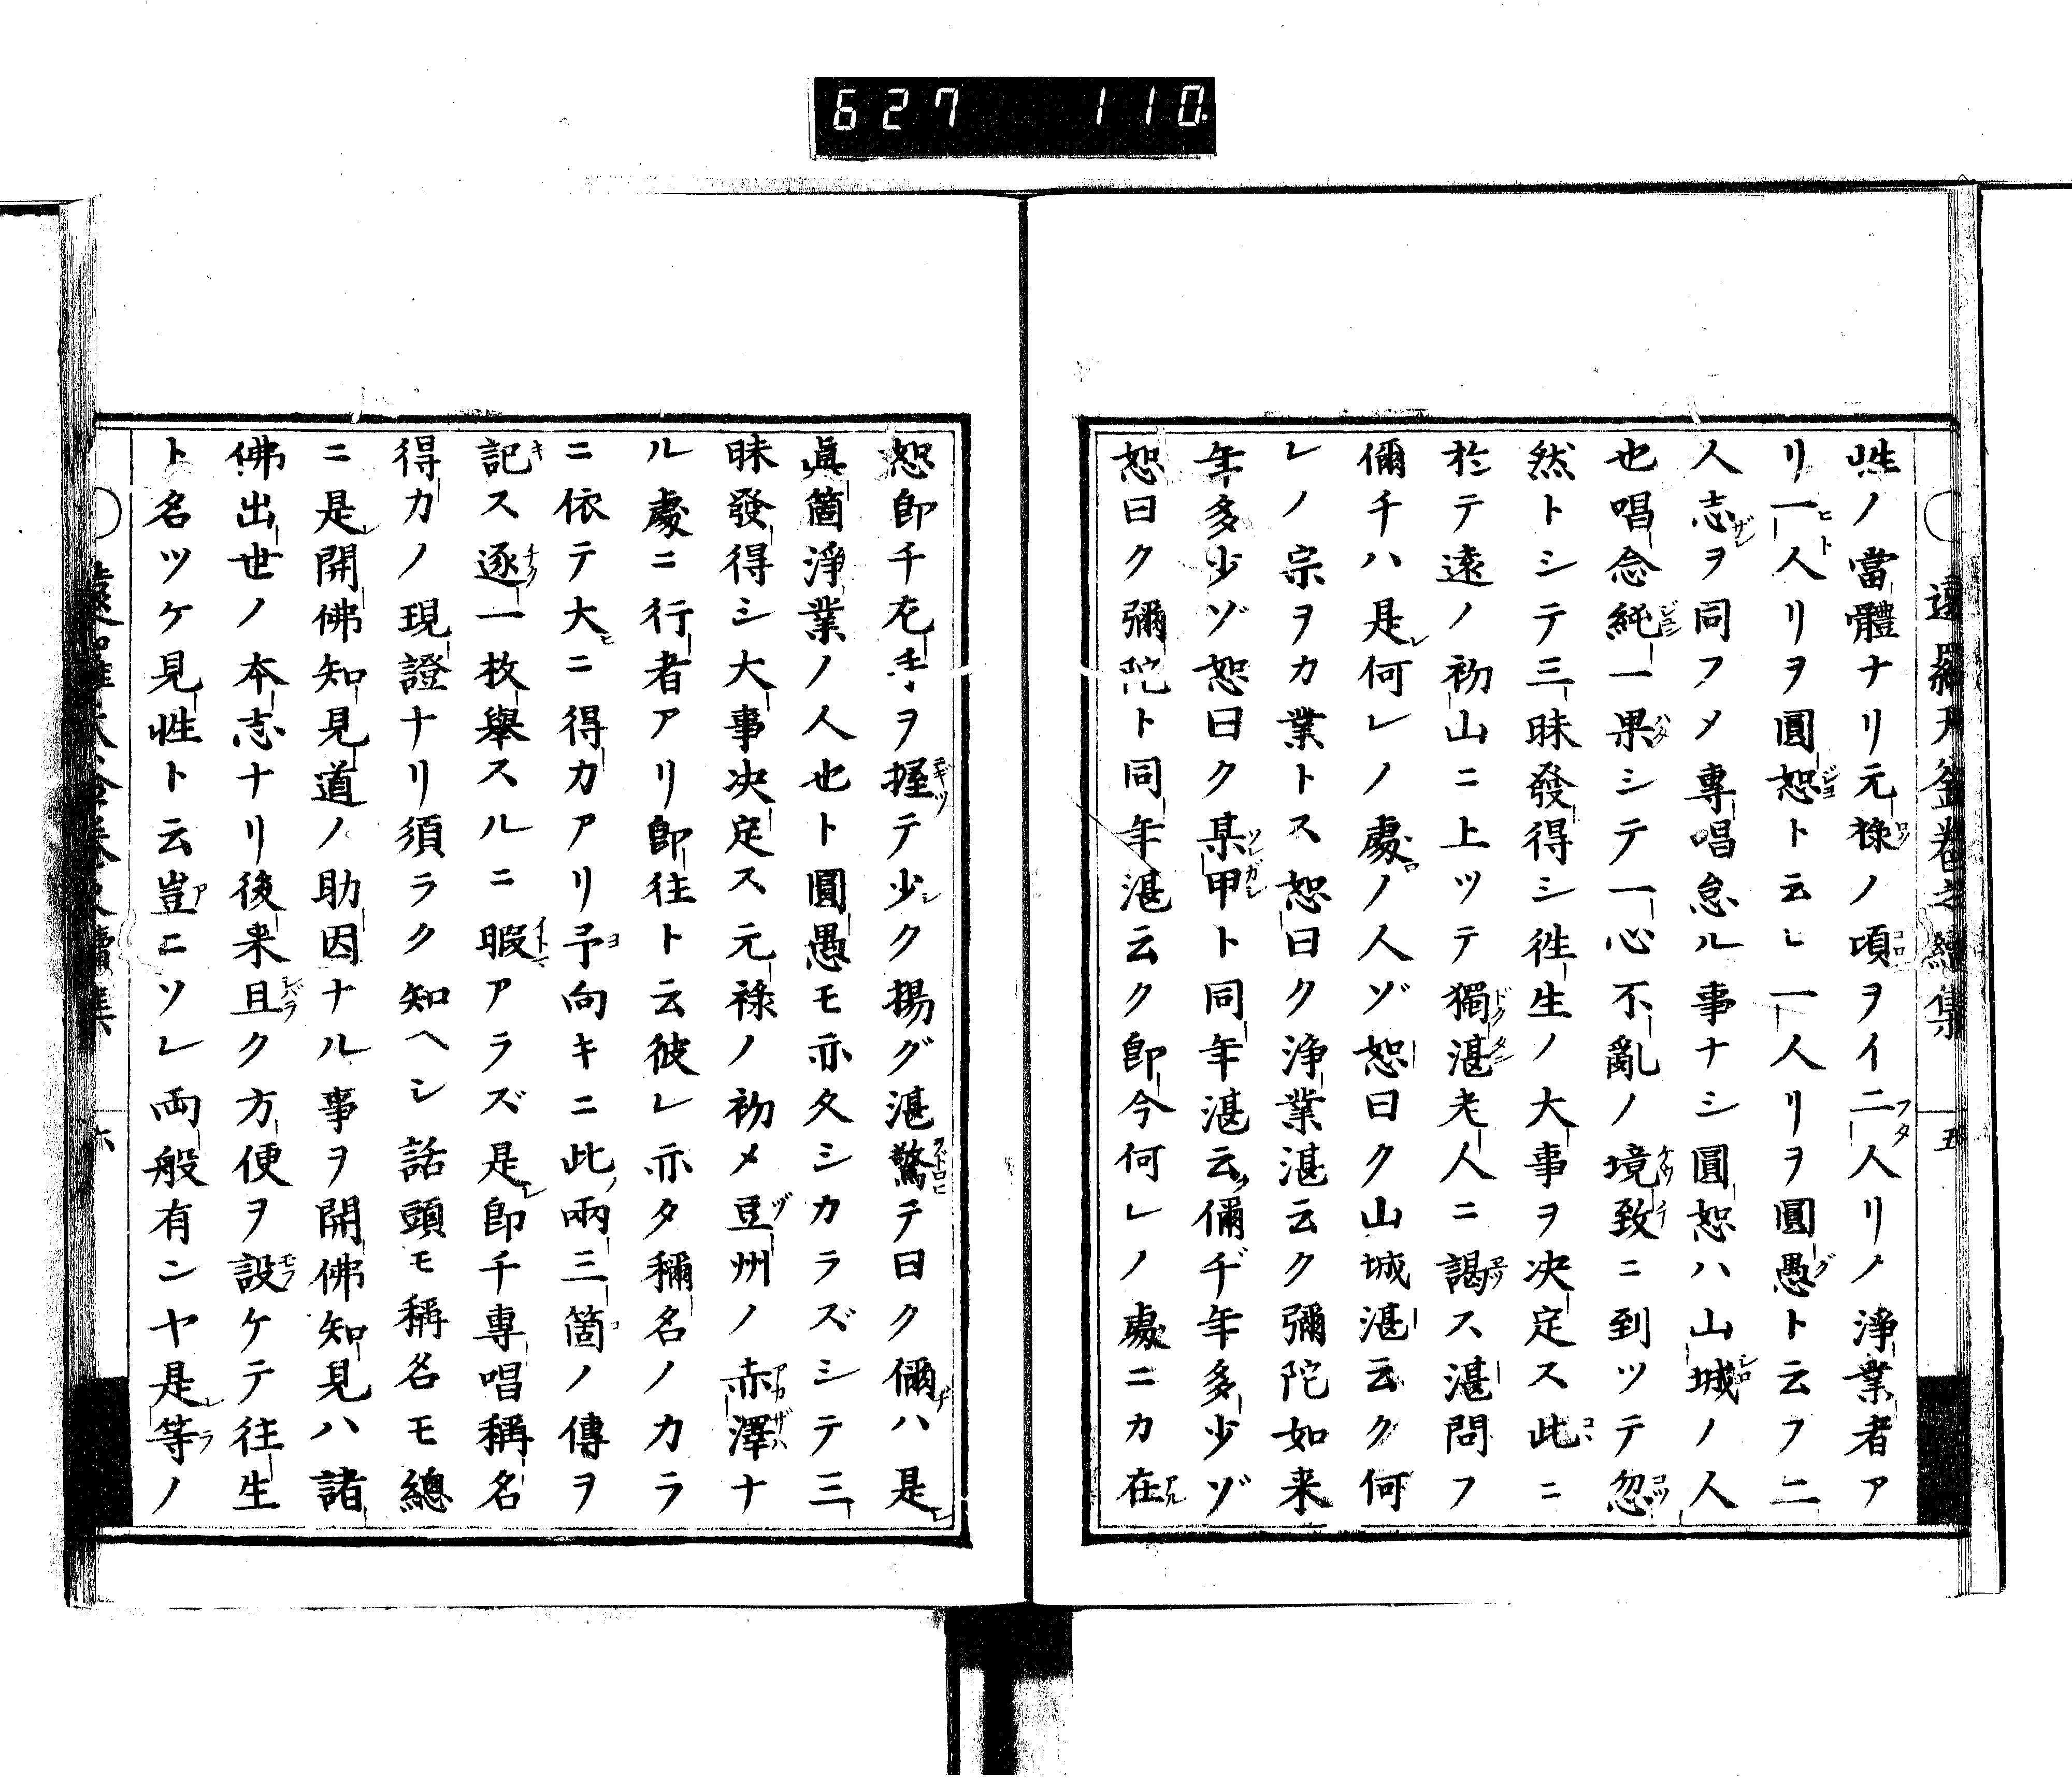 627 110
遠羅天釜卷之續集 五
性ノ當體ナリ元祿ノ頃ヲイ二人リノ淨業者ア
リ一人リヲ圓恕ト云ヒ一人リヲ圓愚ト云フ二
人志ヲ同フメ專唱怠ル事ナシ圓恕ハ山城ノ人
也唱念純一果シテ一心不亂ノ境致ニ到ツテ忽
然トシテ三昧發得シ徃生ノ大事ヲ决定ス此ニ
於テ遠ノ初山ニ上ツテ獨湛老人ニ謁ス湛問フ
儞チハ是何レノ處ノ人ゾ恕曰ク山城湛云ク何
レノ宗ヲカ業トス恕曰ク淨業湛云ク彌陀如来
年多少ゾ恕曰ク某甲ト同年湛云儞ヂ年多少ゾ
恕曰ク彌陀ト同年湛云ク卽今何レノ處ニカ在
恕卽チ左手ヲ握テ少ク揚グ湛驚テ曰ク儞ハ是
眞箇淨業ノ人也ト圓愚モ亦久シカラズシテ三
昧發得シ大事决定ス元祿ノ初メ豆州ノ赤澤ナ
ル處ニ行者アリ卽往ト云彼レ亦タ稱名ノカラ
ニ依テ大ニ得力アリ予向キニ此兩三箇ノ傳ヲ
記ス逐一枚擧スルニ暇アラズ是卽チ專唱稱名
得力ノ現證ナリ須ラク知ヘシ話頭モ稱名モ總
ニ是開佛知見道ノ助因ナル事ヲ開佛知見ハ諸
佛出世ノ本志ナリ後来且ク方便ヲ設ケテ往生
ト名ツケ見性ト云豈ニソレ両般有ンヤ是等ノ
遠羅天釜卷之續集 六